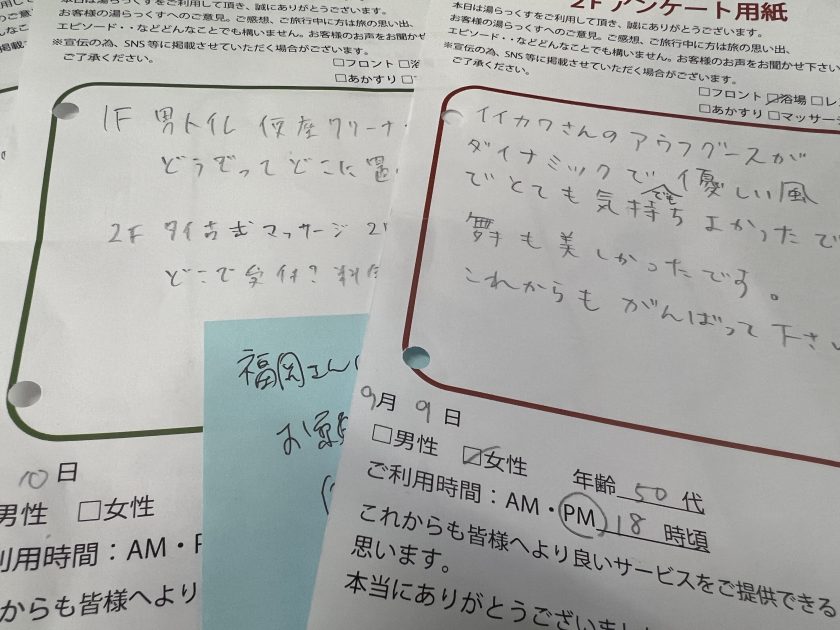 本日は湯らっくすをご利用して頂き、誠にありがとうございます。
お客様の湯らっくすへのご意見。ご感想、ご旅行中に方は旅の思い出、
エピソード・・などどんなことでも構いません。お客様のお声をお聞かせ
※宣伝の為、SNS等に掲載させていただく場合がございます。
ご了承ください。
□フロント □浴
□あかすり □マ
1F 男トイレ 便座クリーナー
どうぞってどこに置い
2F タイ古式マッサージ
どこで受付?料金
10日
男性 □女性
利用時間:AM・P
からも皆様へより
福岡さんに
お願
2Fアンケート用紙
本日は湯らっくすをご利用して頂き、誠にありがとうございます。
お客様の湯らっくすへのご意見。ご感想、ご旅行中に方は旅の思い出、
エピソード・・などどんなことでも構いません。お客様のお声をお聞かせ下さい
※宣伝の為、SNS等に掲載させていただく場合がございます。
ご了承ください。
□フロント ☑浴場 □レス
□あかすり □マッサージ
イイカワさんのアウフグースが
ダイナミックで優しい風
でとても気持ちよかったで
でも
舞も美しかったです。
これからもがんばって下さい
9月9日
□男性 ☑女性 年齢50代
ご利用時間:AM・PM 18時頃
これからも皆様へより良いサービスをご提供できる
思います。
本当にありがとうございまし